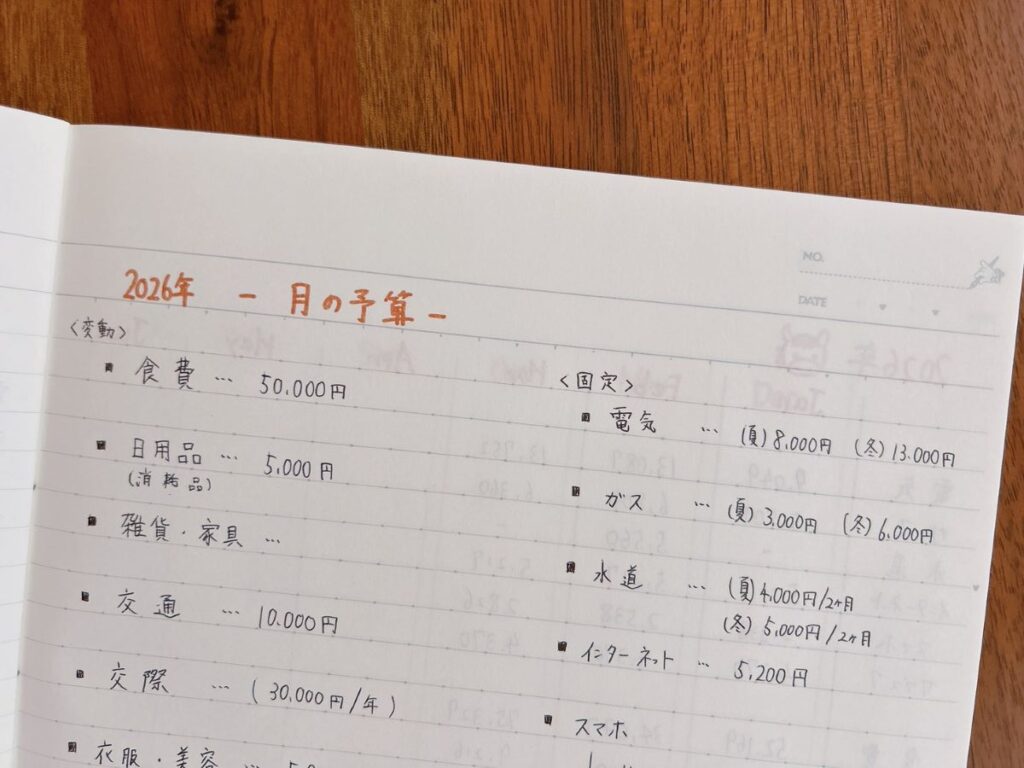 NO.
DATE
2026年 - 月の予算 -
〈変動〉
▪ 食費 … 50,000円
▪ 日用品 … 5,000円
(消耗品)
▪ 雑貨・家具 …
▪ 交通 … 10,000円
▪ 交際 … (30,000円/年)
▪ 衣服・美容 …
〈固定〉
▪ 電気 … (夏)8,000円 (冬)13,000円
▪ ガス … (夏)3,000円 (冬)6,000円
▪ 水道 … (夏)4,000円/2ヶ月
(冬)5,000円/2ヶ月
▪ インターネット … 5,200円
▪ スマホ